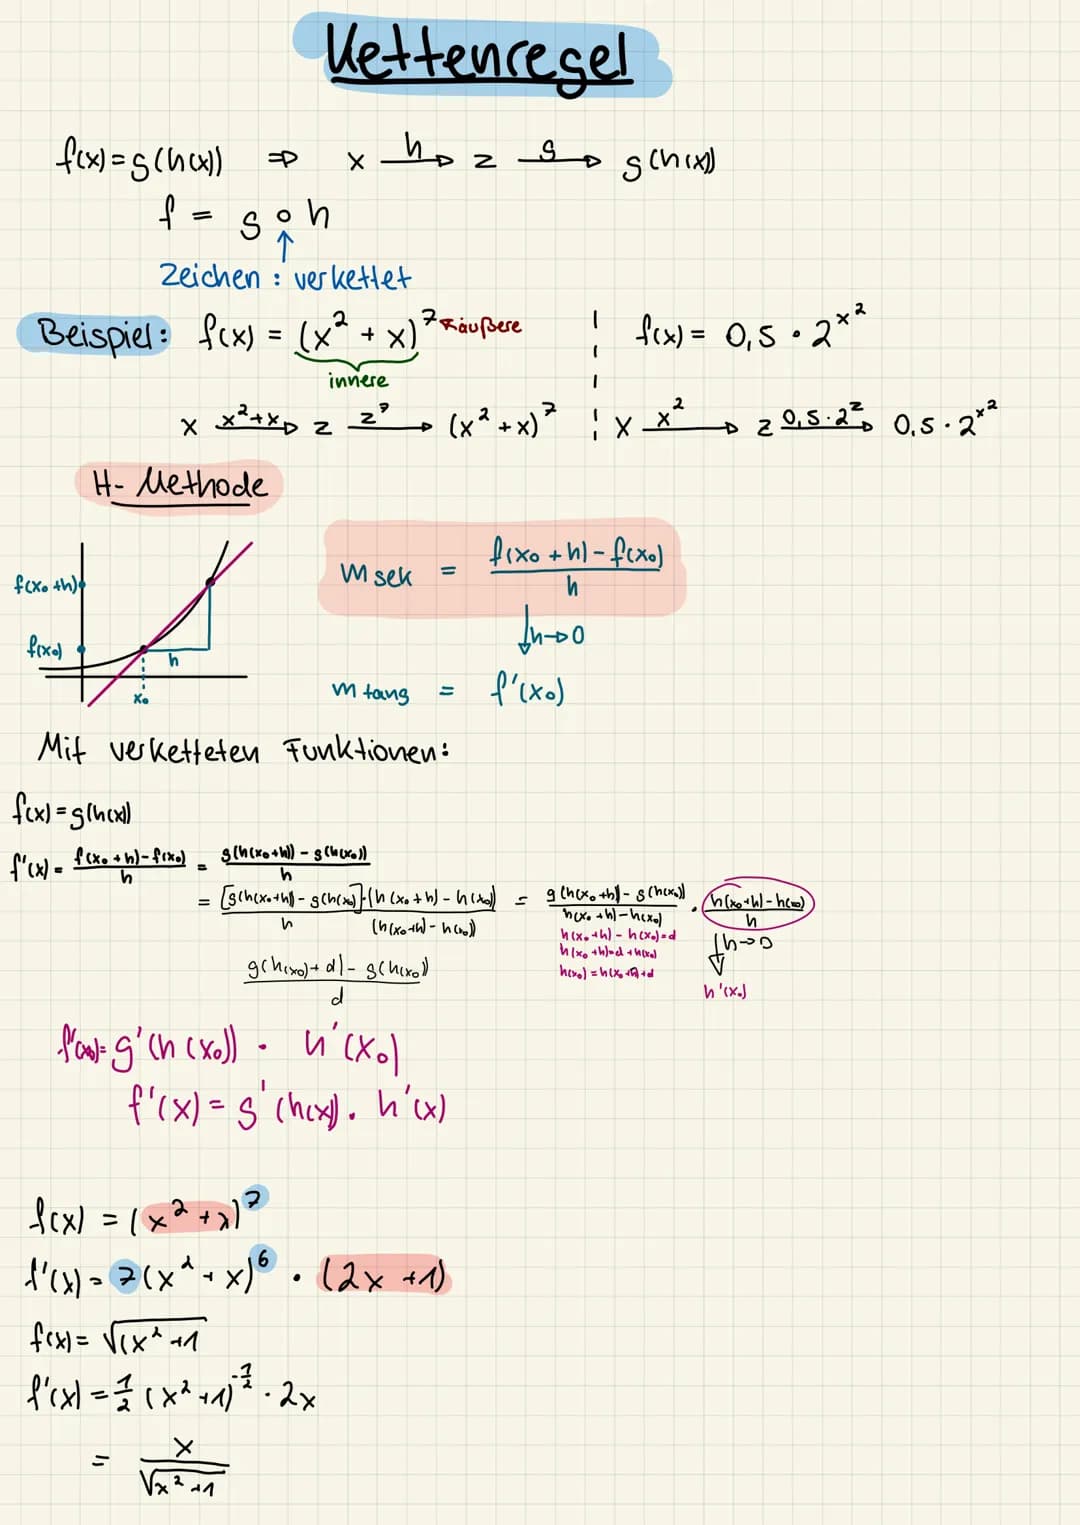 Kettenregel
f(x) = g(h(x)) ⇒ x —h→ z —g→ g(h(x))
f = g ∘ h
↑
Zeichen : verkettet
Beispiel: f(x) = (x² + x)⁷ ← äußere
innere
f(x) = 0,5 · 2^(x²)
x —x²+x→ z —z⁷→ (x² + x)⁷
x —x²→ z —0,5·2^z→ 0,5 · 2^(x²)
H- Methode
f(x₀+h)
f(x₀)
h
x₀
m sek = (f(x₀ + h) - f(x₀)) / h
↓ h→0
m tang = f'(x₀)
Mit verketteten Funktionen:
f(x) = g(h(x))
f'(x) = (f(x₀ + h) - f(x₀)) / h = (g(h(x₀+h)) - g(h(x₀))) / h
= [g(h(x₀+h)) - g(h(x₀))] · (h(x₀ + h) - h(x₀)) / h (h(x₀+h) - h(x₀)) = (g(h(x₀+h)) - g(h(x₀))) / (h(x₀+h) - h(x₀)) · (h(x₀+h) - h(x₀)) / h
h(x₀+h) - h(x₀) = d
h(x₀+h) = d + h(x₀)
↓ h→0
h'(x₀)
(g(h(x₀) + d) - g(h(x₀))) / d
f'(x₀) = g'(h(x₀)) · h'(x₀)
f'(x) = g'(h(x)) · h'(x)
f(x) = (x² + x)⁷
f'(x) = 7(x² + x)⁶ · (2x + 1)
f(x) = √(x² + 1
f'(x) = 1/2 (x² + 1)^(-1/2) · 2x
= x / √(x² + 1)